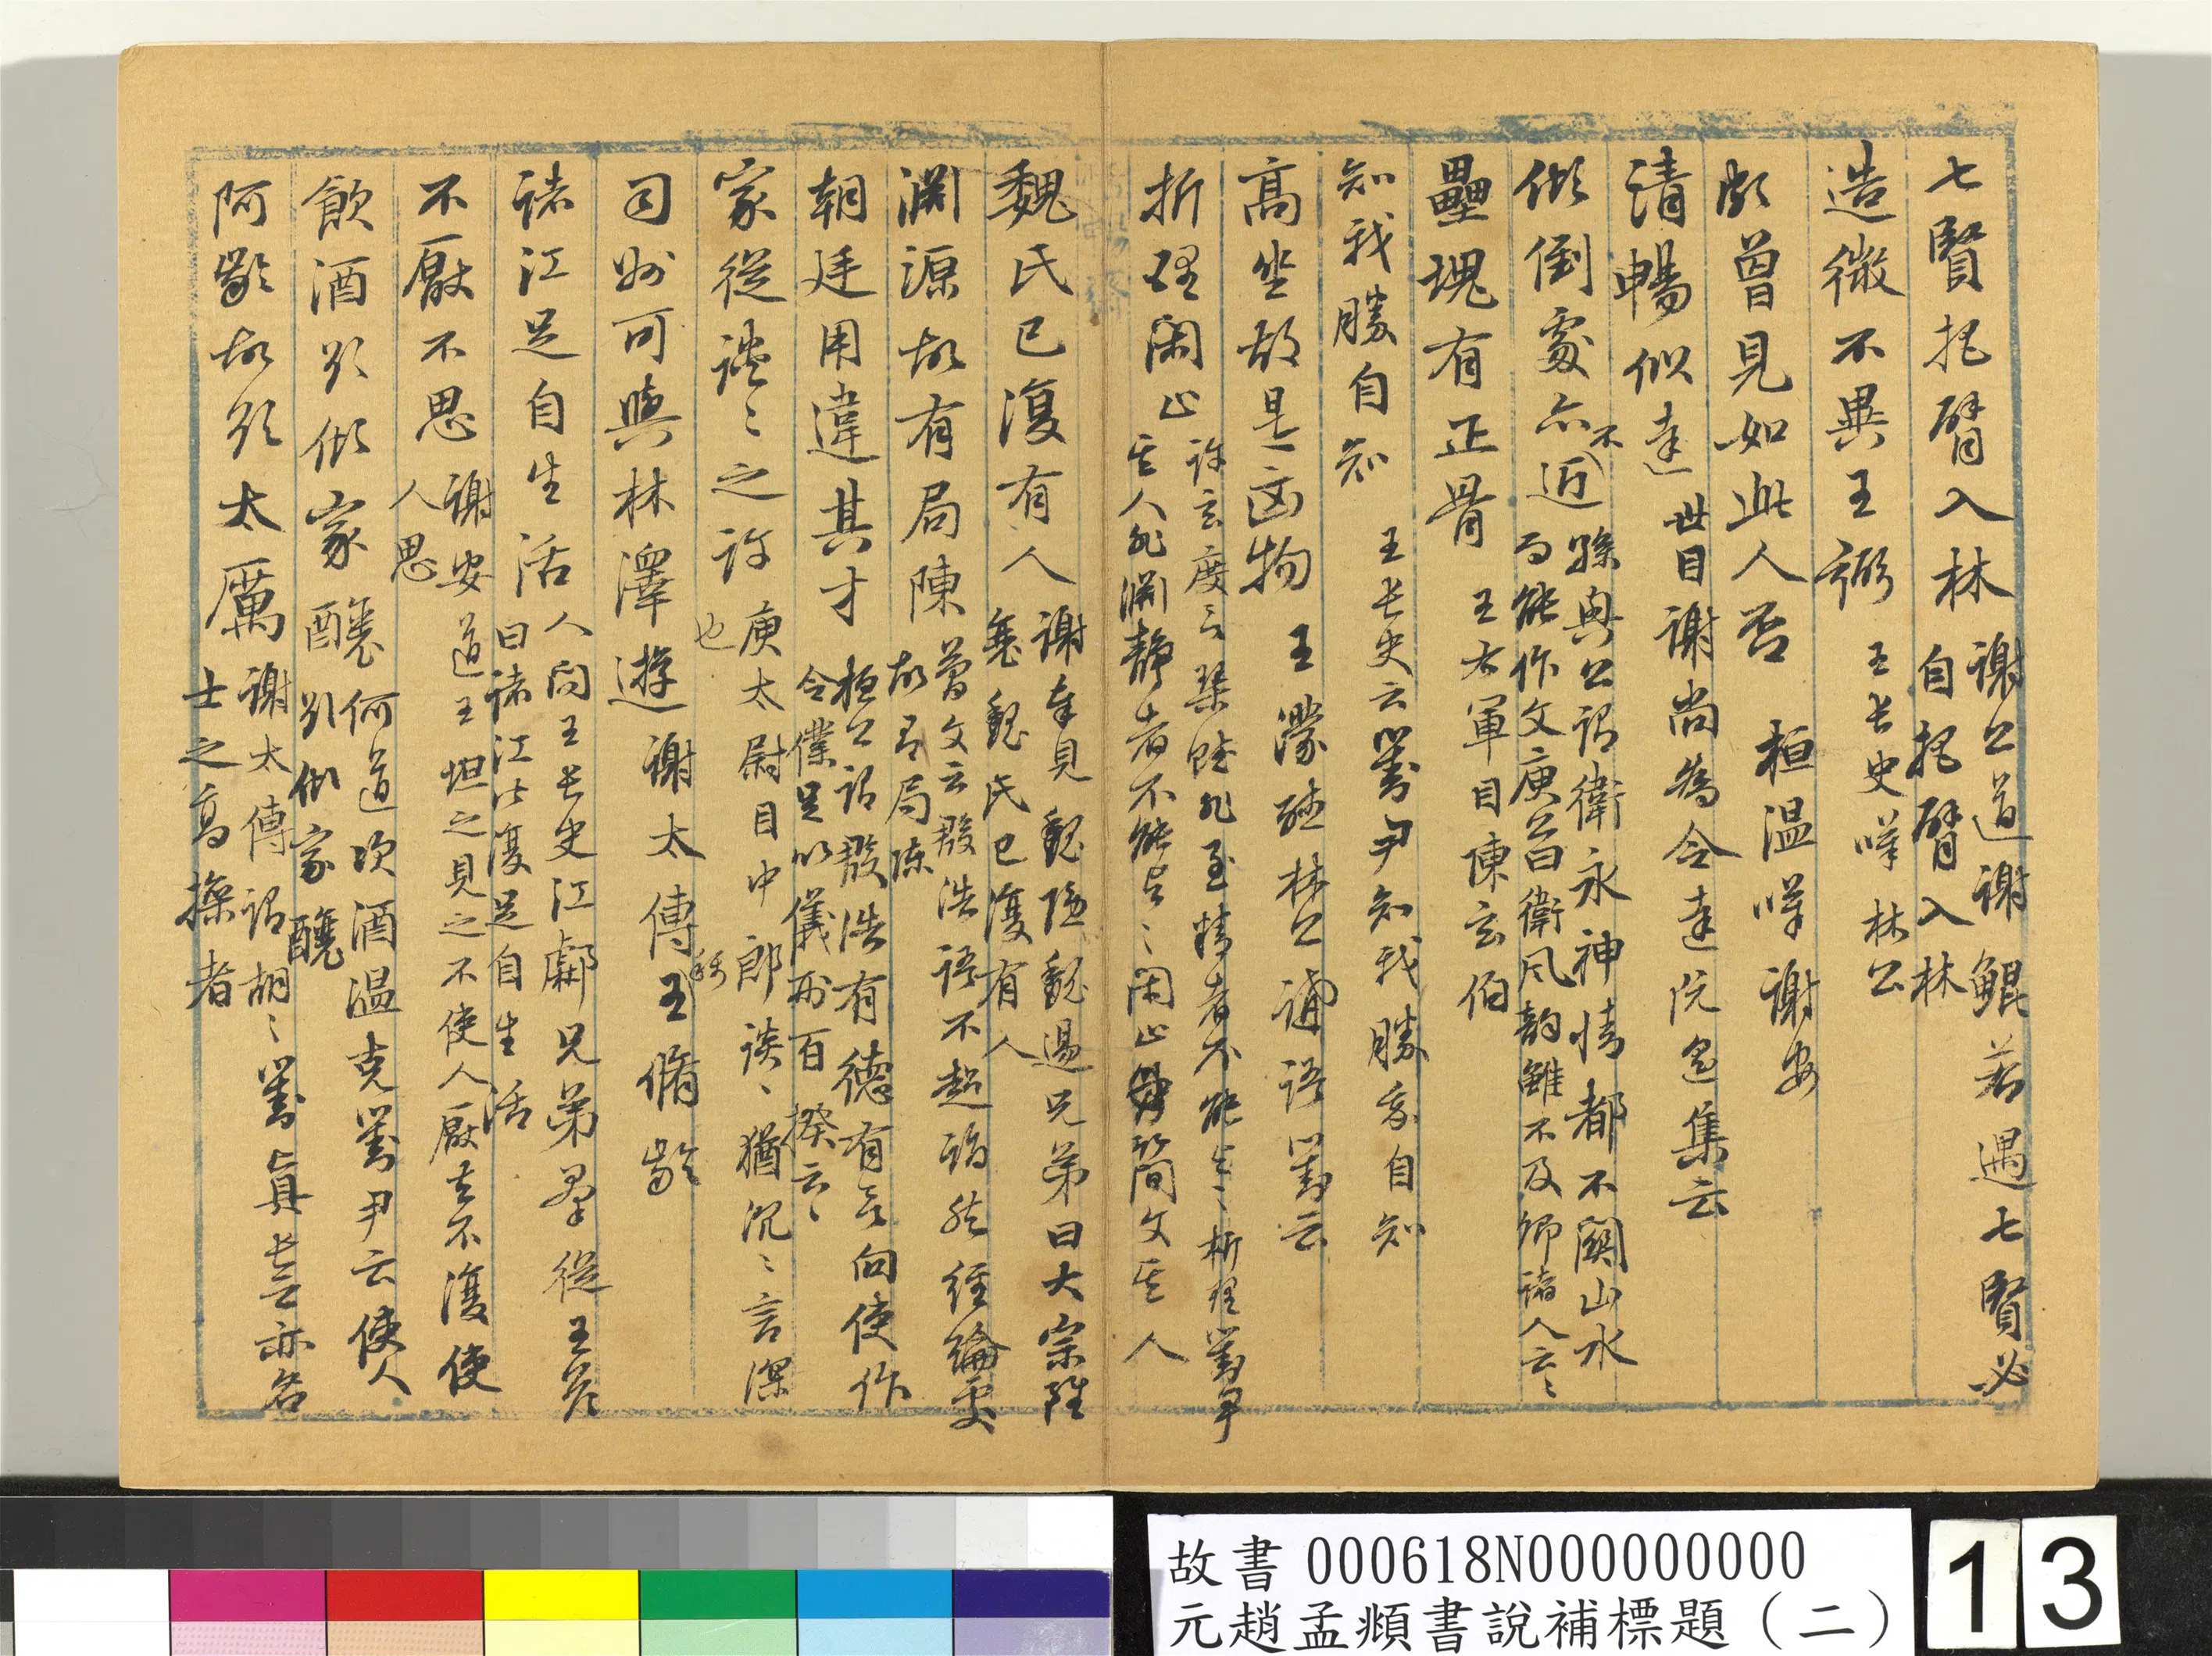 七賢把臂入林 謝公道謝鯤若遇七賢必
自把臂入林
造微不異王弼 王長史嘆林公
頗曾見如此人否 桓溫嘆謝安
清暢似達 世目謝尚為令達阮遥集云
傾倒處亦不近 孫興公謂衛永神情都不關山水
而能作文庾公曰衛風韻雖不及卿諸人云〻
壘塊有正骨 王右軍目陳玄伯
知我勝自知 王長史云劉尹知我勝我自知
高坐故是凶物 王濛 林公 語劉云
折理閑止 許玄度云琴賦非至精者不能與之析理劉尹
其人非淵靜者不能與之閑止 簡文其人
魏氏已復有人 謝車見魏隱魏逷兄弟曰大宗雖
衰魏氏已復有人
淵源故有局陳 簡文云殷浩語不超詣然經綸處
故有局陳
朝廷用違其才 桓公語殷浩有德有言向使作
令僕足以儀刑百揆云〻
家從談〻之許 庾太尉目中郎 談〻猶沉〻言深
也
司州可與林澤遊 謝太傅稱王脩齡
諸江足自生活 人問王長史江虨兄弟羣從王答
曰諸江皆復足自生活
不厭不思 謝安道王坦之見之不使人厭去不復使
人思
飲酒欲傾家釀 何道次酒溫克劉尹云使人
欲傾家釀
阿齡故欲太厲 謝太傅謂胡〻劉真長云亦名
士之高操者
故書000618N000000000
元趙孟頫書說補標題（二）
13